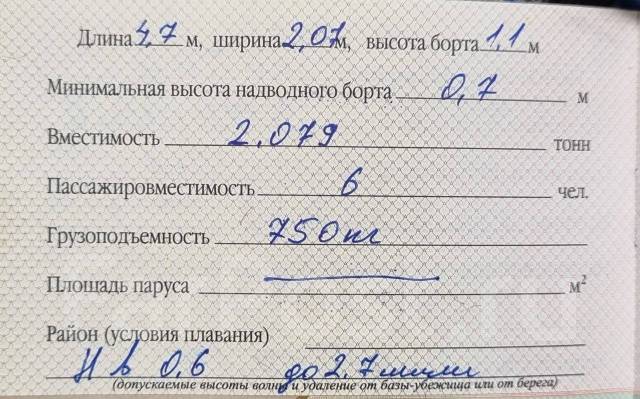 Длина 4,7 м, ширина 2,07 м, высота борта 1,1 м
Минимальная высота надводного борта 0,7 м
Вместимость 2.079 тонн
Пассажировместимость 6 чел.
Грузоподъемность 750 кг
Площадь паруса м²
Район (условия плавания)
H в 0,6 до 2,7 мили
(допускаемые высоты волны и удаление от базы-убежища или от берега)